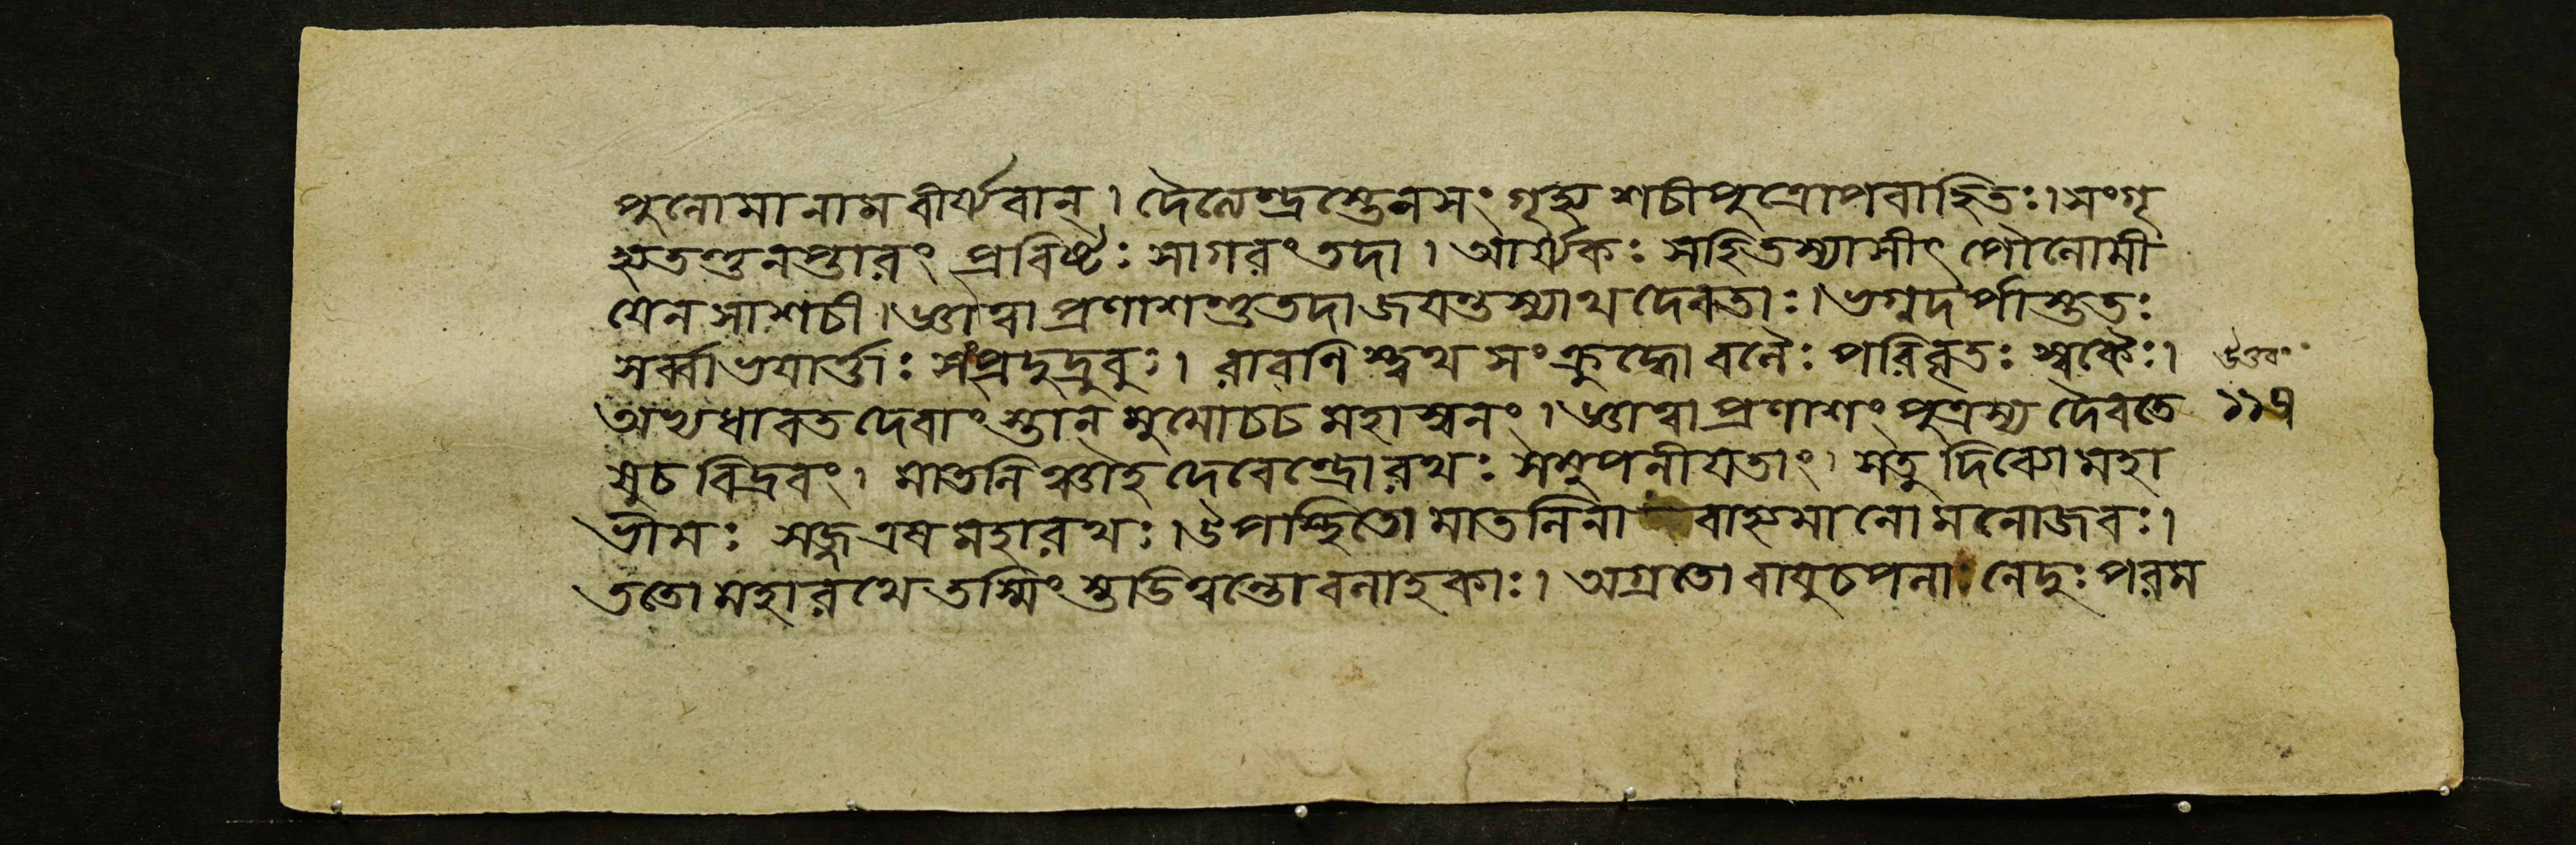 পুলোমা নাম বীর্য্যবান্। দৈত্যেন্দ্রস্তেন সংগৃহ্য শচীপুত্রোপবাহিতঃ। সংগৃ
হ্য তন্তু নপ্তারং প্রবিষ্টঃ সাগরং তদা। আর্য্যকঃ সহি তস্যাসীৎ পৌলোমী
যেন সা শচী। জ্ঞাত্বা প্রণাশন্তু তদা জয়ন্তস্যাথ দেবতাঃ। ভগ্নদর্পাস্তুতঃ
সর্ব্বা ভয়ার্ত্তাঃ সংপ্রদুদ্রুবুঃ। রাবণিস্ত্বথ সংক্রুদ্ধো বলৈঃ পরিবৃতঃ স্বকৈঃ।
অভ্যধাবত দেবাংস্তান্ মুমোচ চ মহাস্বনং। জ্ঞাত্বা প্রণাশং পুত্রস্য দৈবতে
ষু চ বিদ্রবং। মাতলিঞ্চাহ দেবেন্দ্রো রথঃ সমুপনীয়তাং। সতু দিব্যো মহা
ভীমঃ সজ্জ এষ মহারথঃ। উপস্থিতো মাতলিনা বাহ্যমানো মনোজবঃ।
ততো মহারথে তস্মিংস্তাডিত্বন্তো বলাহকাঃ। অগ্রতো বায়ুচপলাঃ নেদুঃ পরম
১১৭